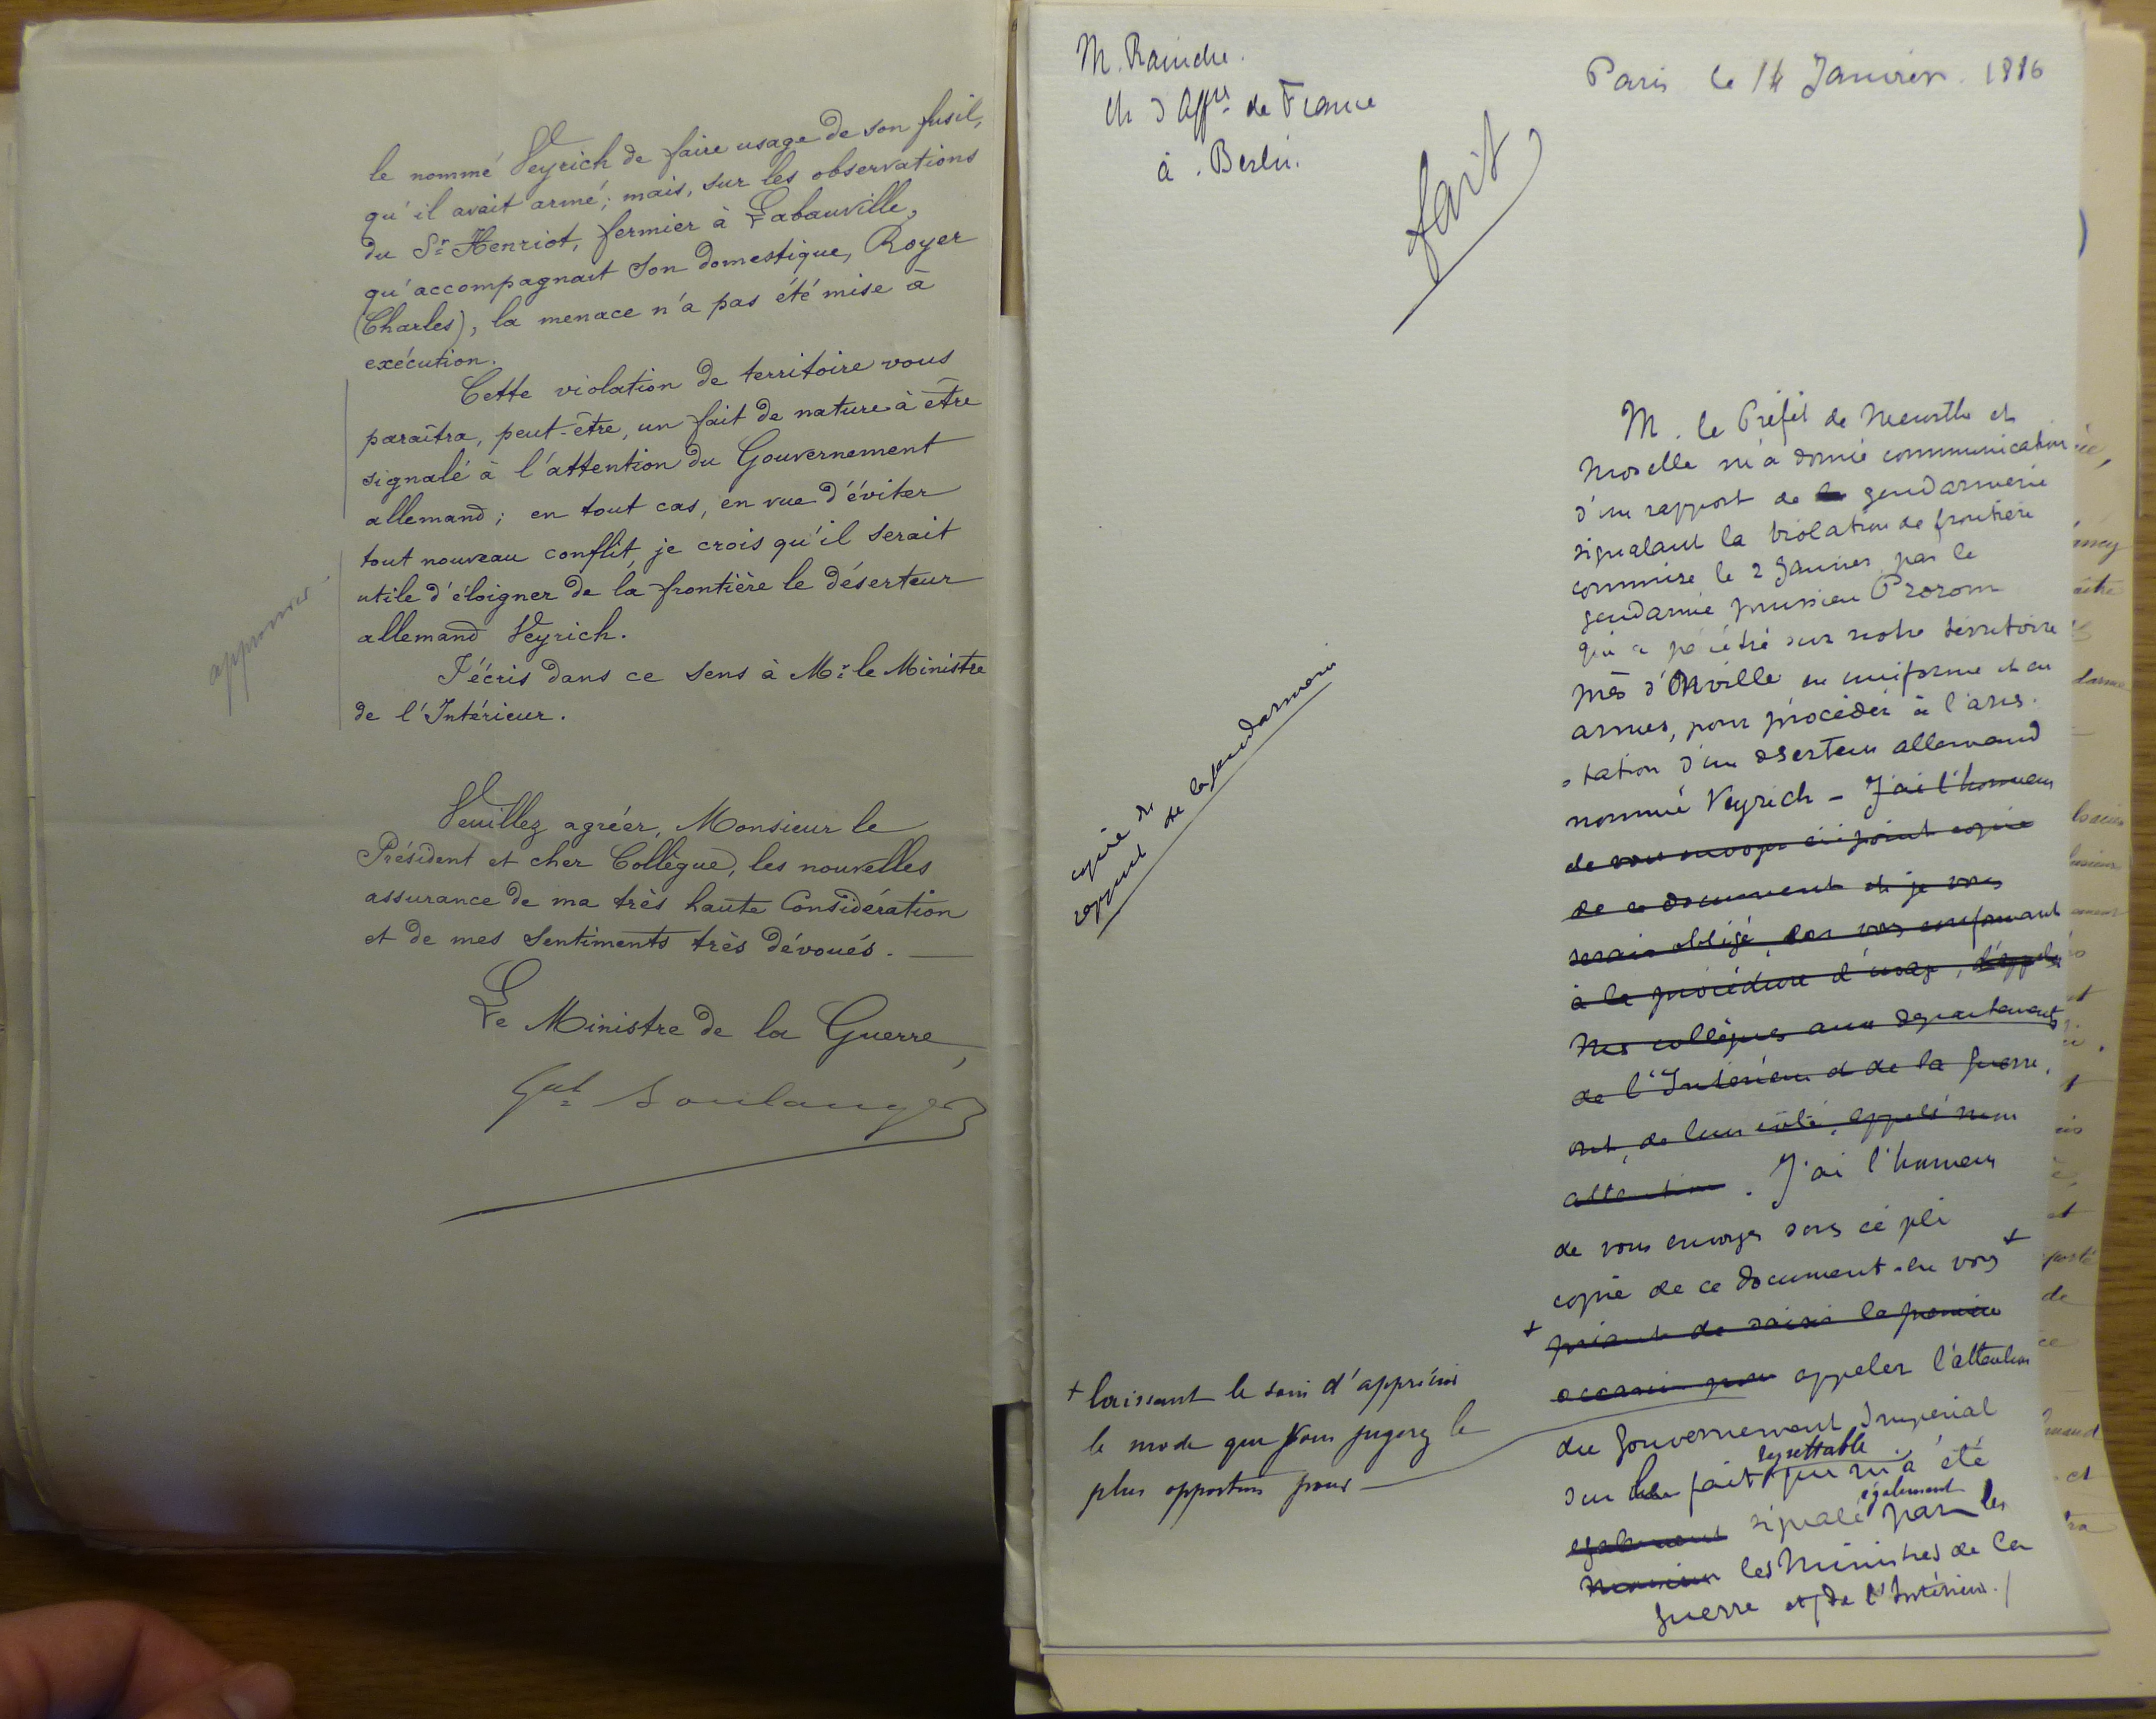 le nommé Veyrich de faire usage de son fusil,
qu'il avait armé; mais, sur les observations
du Sr. Henriot, fermier à Labauville,
qu'accompagnait son domestique, Royer
(Charles), la menace n'a pas été mise à
exécution.
Cette violation de territoire vous
paraîtra, peut-être, un fait de nature à être
signalé à l'attention du Gouvernement
allemand; en tout cas, en vue d'éviter
tout nouveau conflit, je crois qu'il serait
utile d'éloigner de la frontière le déserteur
allemand Veyrich.
J'écris dans ce sens à Mr. le Ministre
de l'Intérieur.
Veuillez agréer, Monsieur le
Président et cher Collègue, les nouvelles
assurance de ma très haute Considération
et de mes Sentiments très dévoués. —
Le Ministre de la Guerre,
Gal Boulanger
M. Raindre.
Ch d'Affres de France
à Berlin.
Paris le 14 Janvier. 1886
fait
copie du
rapport de la gendarmerie
M. le Préfet de Meurthe et
Moselle m'a donné communication
d'un rapport de la gendarmerie
signalant la violation de frontière
commise le 2 Janvier par le
gendarme prussien Prorom
qui a pénétré sur notre territoire
près d'Onville en uniforme et en
armes, pour procéder à l'arres-
-tation d'un déserteur allemand
nommé Veyrich - J'ai l'honneur
de vous envoyer ci-joint copie
de ce document et je vous
serais obligé, en vous conformant
à la procédure d'usage, d'appeler
Mes collègues aux départements
de l'Intérieur et de la guerre,
ont, de leur côté, appelé mon
attention. J'ai l'honneur
de vous envoyer sous ce pli
copie de ce document en vous +
+ priant de saisir la première
occasion pour appeler l'attention
du Gouvernement Impérial
sur le fait regrettable qui m'a été
également signalé également par les
les Ministres de la
guerre et de l'Intérieur./
+ laissant le soin d'apprécier
le mode que vous jugerez le
plus opportun pour —